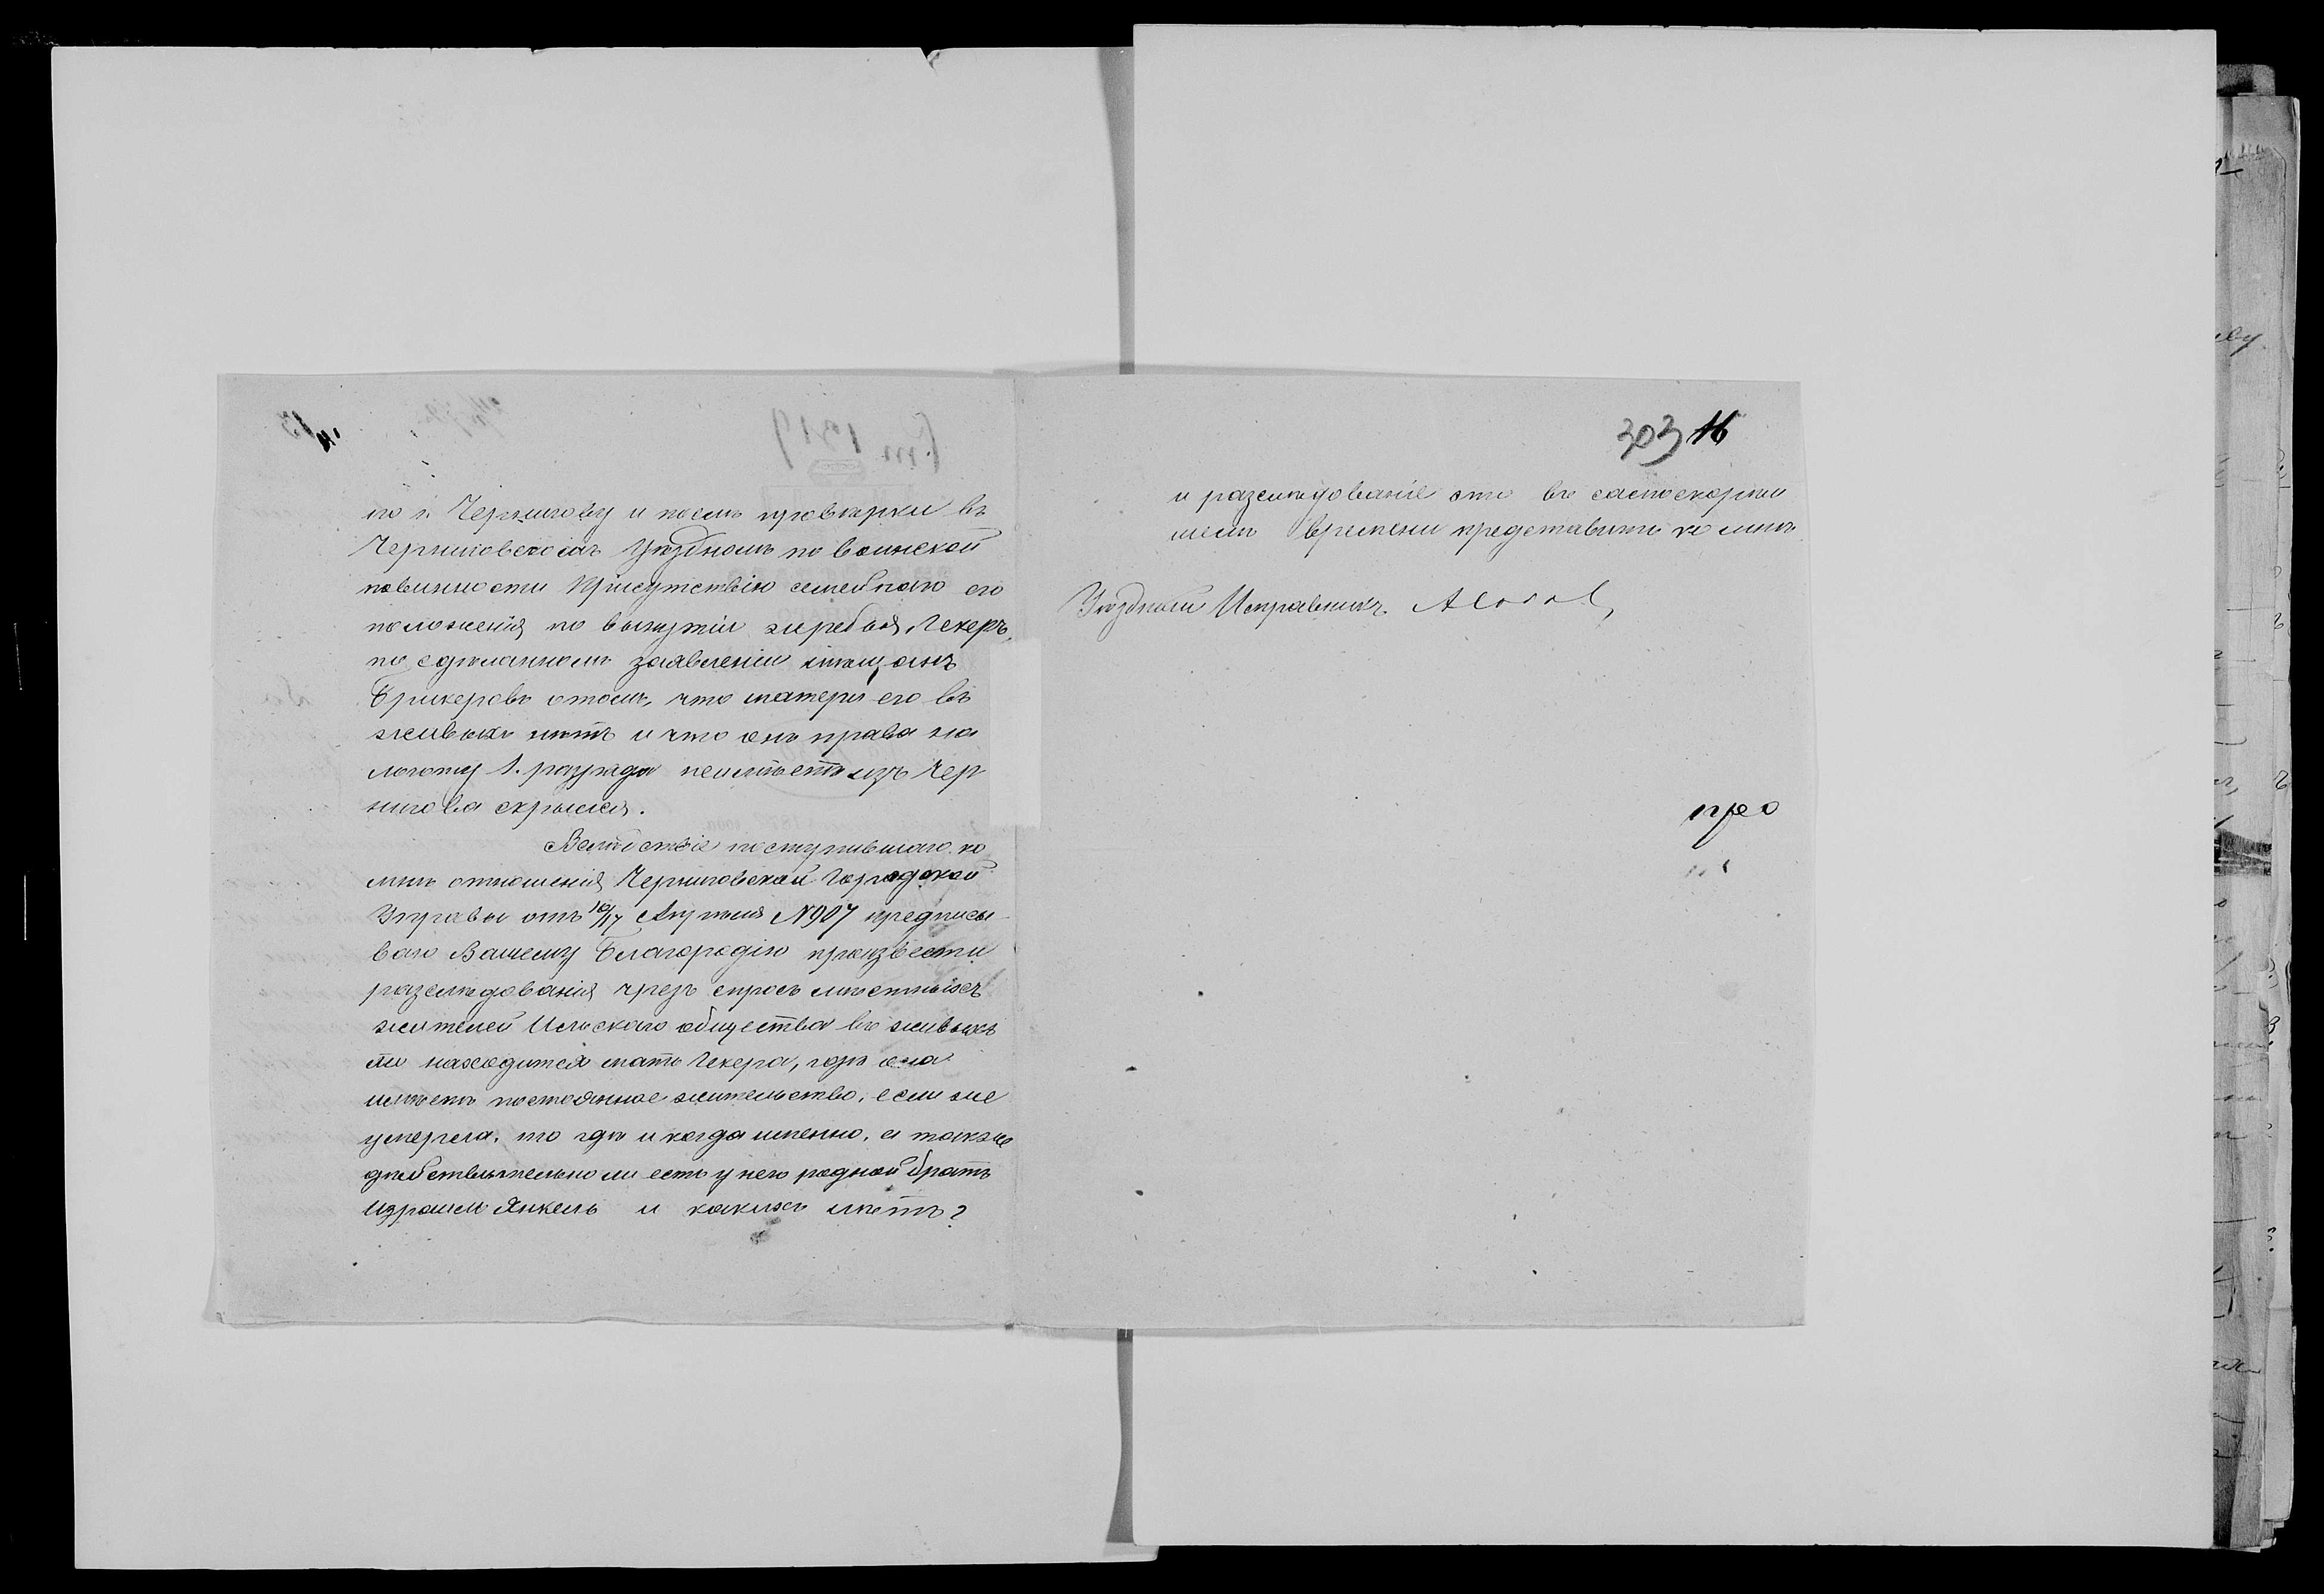 303 16
по г. Чернигову и послѣ провѣрки въ
Черниговскомъ Уѣздномъ по воинской
повинности Присутствію семейнаго его
положенія по вынутіи жребья, Чекеръ,
по сдѣланномъ заявленіи мѣщанъ
Брикеровъ отомъ, что матери его въ
живыхъ нѣтъ и что онъ права на
льготу 1. разряда неимѣетъ изъ Чер
нигова скрылся.
Вслѣдствіе поступившаго ко
мнѣ отношенія Черниговской Городской
Управы отъ 16/17 Августа №907 предписы
ваю Вашему Благородію произвести
разслѣдованія чрезъ спросъ мѣстныхъ
жителей общества въ живыхъ
ли находится мать Чекера, гдѣ она
имѣетъ постоянное жительство, если же
умерла, то гдѣ и когда именно, а также
дѣйствительно ли есть у него родной братъ
Израиль Янкель и какихъ лѣтъ?
и разслѣдованіе это въ самоскорѣй
шемъ времени представить ко мнѣ.
Уѣздный Исправникъ.